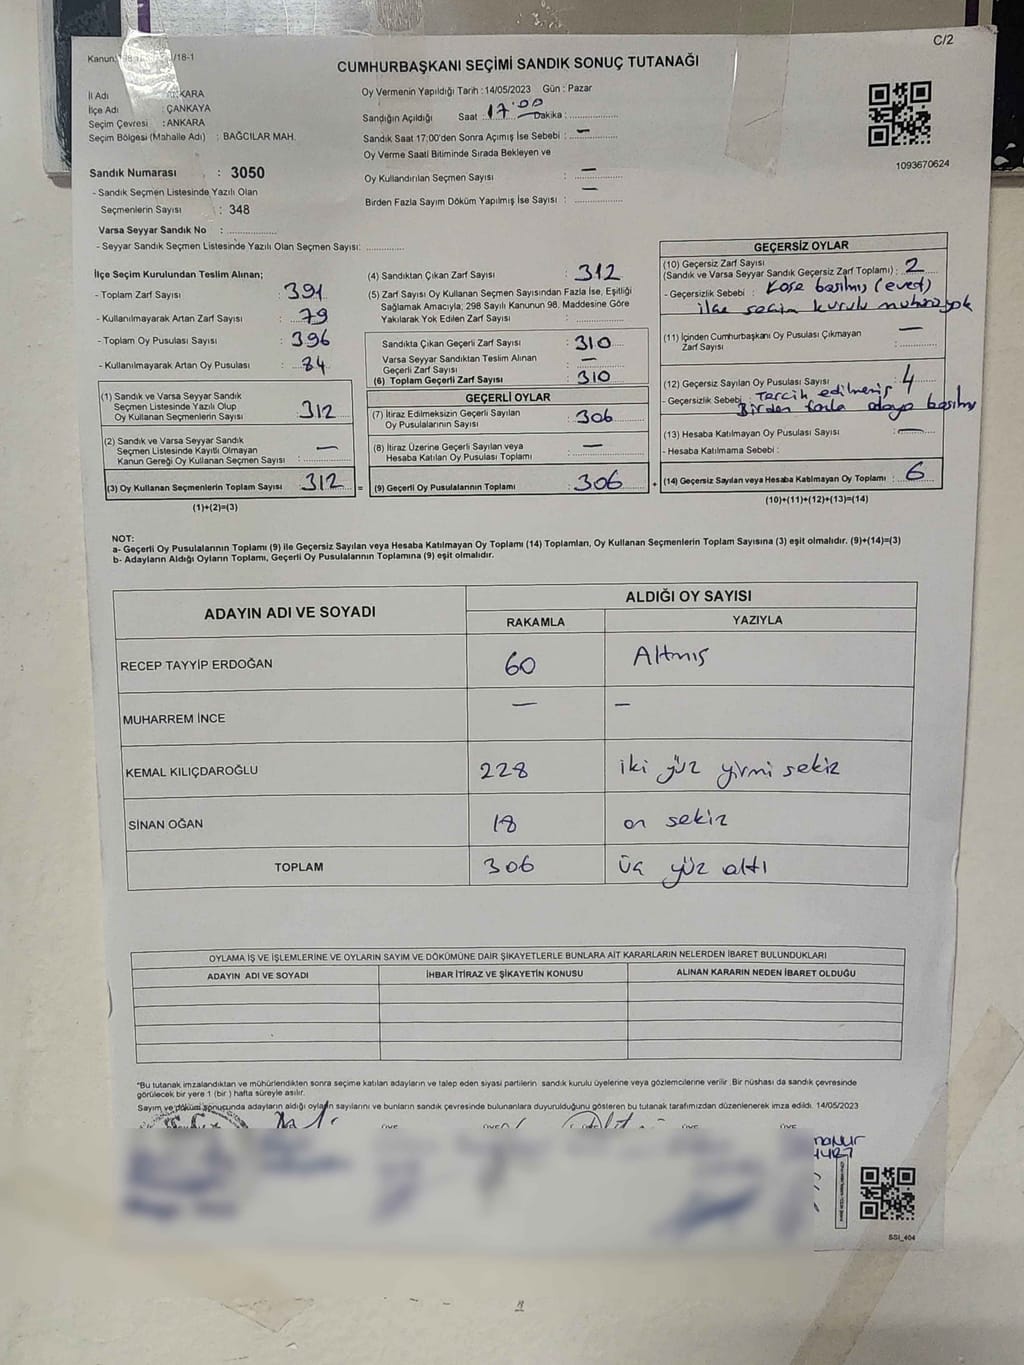 C/2
CUMHURBAŞKANI SEÇİMİ SANDIK SONUÇ TUTANAĞI
İl Adı : ANKARA
İlçe Adı : ÇANKAYA
Seçim Çevresi : ANKARA
Seçim Bölgesi (Mahalle Adı) : BAĞCILAR MAH.
Sandık Numarası : 3050
- Sandık Seçmen Listesinde Yazılı Olan
Seçmenlerin Sayısı : 348
Varsa Seyyar Sandık No :
- Seyyar Sandık Seçmen Listesinde Yazılı Olan Seçmen Sayısı:
Oy Vermenin Yapıldığı Tarih :14/05/2023 Gün : Pazar
Sandığın Açıldığı Saat : 17:00 Dakika :
Sandık Saat 17:00'den Sonra Açımış İse Sebebi : —
Oy Verme Saati Bitiminde Sırada Bekleyen ve
Oy Kullandırılan Seçmen Sayısı : —
Birden Fazla Sayım Döküm Yapılmış İse Sayısı : —
1093670624
İlçe Seçim Kurulundan Teslim Alınan;
- Toplam Zarf Sayısı : 391
- Kullanılmayarak Artan Zarf Sayısı : 79
- Toplam Oy Pusulası Sayısı : 396
- Kullanılmayarak Artan Oy Pusulası : 84
(1) Sandık ve Varsa Seyyar Sandık
Seçmen Listesinde Yazılı Olup
Oy Kullanan Seçmenlerin Sayısı : 312
(2) Sandık ve Varsa Seyyar Sandık
Seçmen Listesinde Kayıtlı Olmayan
Kanun Gereği Oy Kullanan Seçmen Sayısı : —
(3) Oy Kullanan Seçmenlerin Toplam Sayısı : 312
(1)+(2)=(3)
(4) Sandıktan Çıkan Zarf Sayısı : 312
(5) Zarf Sayısı Oy Kullanan Seçmen Sayısından Fazla İse, Eşitliği
Sağlamak Amacıyla, 298 Sayılı Kanunun 98. Maddesine Göre
Yakılarak Yok Edilen Zarf Sayısı :
Sandıkta Çıkan Geçerli Zarf Sayısı : 310
Varsa Seyyar Sandıktan Teslim Alınan
Geçerli Zarf Sayısı : —
(6) Toplam Geçerli Zarf Sayısı : 310
GEÇERLİ OYLAR
(7) İtiraz Edilmeksizin Geçerli Sayılan
Oy Pusulalarının Sayısı : 306
(8) İtiraz Üzerine Geçerli Sayılan veya
Hesaba Katılan Oy Pusulası Toplamı : —
= (9) Geçerli Oy Pusulalarının Toplamı : 306
GEÇERSİZ OYLAR
(10) Geçersiz Zarf Sayısı
(Sandık ve Varsa Seyyar Sandık Geçersiz Zarf Toplamı) : 2
- Geçersizlik Sebebi : Kaşe basılmış (evet)
ilçe seçim kurulu mührü yok
(11) İçinden Cumhurbaşkanı Oy Pusulası Çıkmayan
Zarf Sayısı : —
(12) Geçersiz Sayılan Oy Pusulası Sayısı : 4
- Geçersizlik Sebebi : Tercih edilmemiş
Birden fazla adaya basılmış
(13) Hesaba Katılmayan Oy Pusulası Sayısı : —
- Hesaba Katılmama Sebebi :
+ (14) Geçersiz Sayılan veya Hesaba Katılmayan Oy Toplamı : 6
(10)+(11)+(12)+(13)=(14)
NOT:
a- Geçerli Oy Pusulalarının Toplamı (9) ile Geçersiz Sayılan veya Hesaba Katılmayan Oy Toplamı (14) Toplamları, Oy Kullanan Seçmenlerin Toplam Sayısına (3) eşit olmalıdır. (9)+(14)=(3)
b- Adayların Aldığı Oyların Toplamı, Geçerli Oy Pusulalarının Toplamına (9) eşit olmalıdır.
ADAYIN ADI VE SOYADI
ALDIĞI OY SAYISI
RAKAMLA YAZIYLA
RECEP TAYYİP ERDOĞAN 60 Altmış
MUHARREM İNCE — —
KEMAL KILIÇDAROĞLU 228 iki yüz yirmi sekiz
SİNAN OĞAN 18 on sekiz
TOPLAM 306 üç yüz altı
OYLAMA İŞ VE İŞLEMLERİNE VE OYLARIN SAYIM VE DÖKÜMÜNE DAİR ŞİKAYETLERLE BUNLARA AİT KARARLARIN NELERDEN İBARET BULUNDUKLARI
ADAYIN ADI VE SOYADI İHBAR İTİRAZ VE ŞİKAYETİN KONUSU ALINAN KARARIN NEDEN İBARET OLDUĞU
*Bu tutanak imzalandıktan ve mühürlendikten sonra seçime katılan adayların ve talep eden siyasi partilerin sandık kurulu üyelerine veya gözlemcilerine verilir. Bir nüshası da sandık çevresinde
görülecek bir yere 1 (bir ) hafta süreyle asılır.
Sayım ve döküm sonucunda adayların aldığı oyların sayılarını ve bunların sandık çevresinde bulunanlara duyurulduğunu gösteren bu tutanak tarafımızdan düzenlenerek imza edildi. 14/05/2023
SSI_404